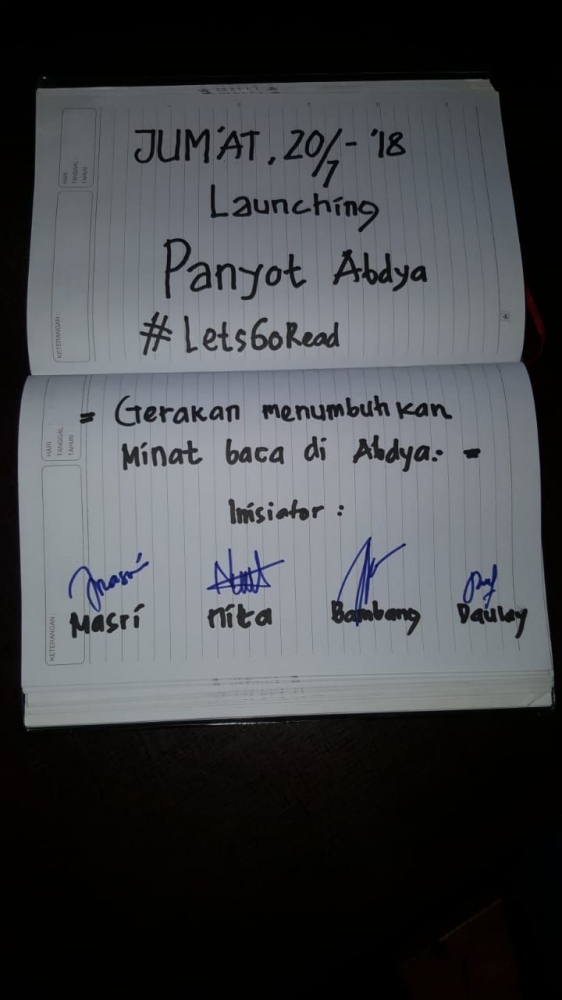 JUM'AT, 20/7-'18
Launching
Panyot Abdya
#LetsGoRead
= Gerakan menumbuhkan
Minat baca di Abdya.- =
Inisiator :
Masri Nita Bambang Daulay
HARI
TANGGAL
TAHUN
KETERANGAN :
HARI
TANGGAL
TAHUN
KETERANGAN :